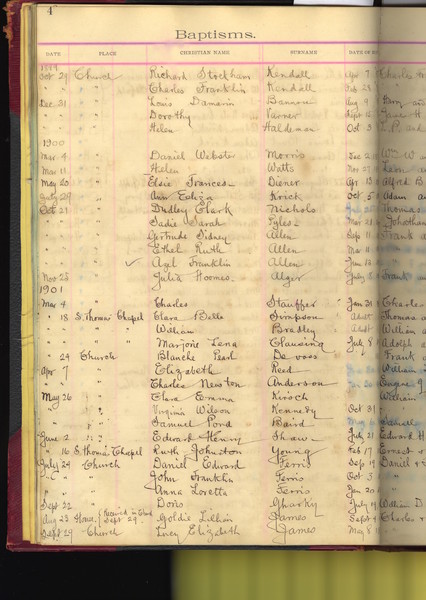 4
Baptisms.
DATE PLACE CHRISTIAN NAME SURNAME DATE OF
1899
Oct 29 Church Richard Stockham Kendall Apr 7 Charles
" " " Charles Franklin Kendall Feb 23
Dec. 31 " Louis Damarin Aug 9 Harry
" " " Dorothy Varner Sept 12 James H
" " " Helen Haldeman Oct 3
1900
Mar 4 " Daniel Webster Morris Dec 2
Mar 11 " Helen Watts Nov 27
May 20 " Elsie Frances Diener Apr 13 Alfred B
July 29 " Ann Eliza Krick Oct 5 Adam
Oct 21 " Dudley Clark Nichols Thomas
" " " Sadie Sarah Pyles Mar Johnathan
" " " Gertrude Sidney Allen Sept 11 Frank
" " " Ethel Ruth Allen Mar 11
" " " Franklin Allen Jan 12
Nov 25 " Julia Alger Frank
1901
Mar 4 " Charles Stauffer Jan 31 Charles
" 18 S. Thomas' Chapel Clara Belle Simpson Thomas
" " " " William Bradley William
" " " " Marjorie Lena Clausing July 8 Adolph
" 24 Church Blanche Pearl De voss Frank
Apr 7 " Elizabeth Reed William
" " " Charles Newton Anderson Eugene
May 26 " Clara Emma Kirsch William
" " " Virginia Wilson Kennedy Oct 31
" " " Samuel Pond Baird
June 2 " Edward Henry Shaw July 21 Edward H
" 16 S. Thomas Chapel Ruth Johnston Young Feb 17 Ernest
July 24 Church Daniel Edward Ferris Sep 19 Daniel
" " " John Franklin Ferris Oct 5
" " " Anna Loretta Ferris Jan 20
Sept 22 " Doris Gharky July 19 William D
Aug 23 House. (Received in Church Sept 29.) Goldie Lillian James Sept Charles
Sept 29 Church Lucy Elizabeth James May 8